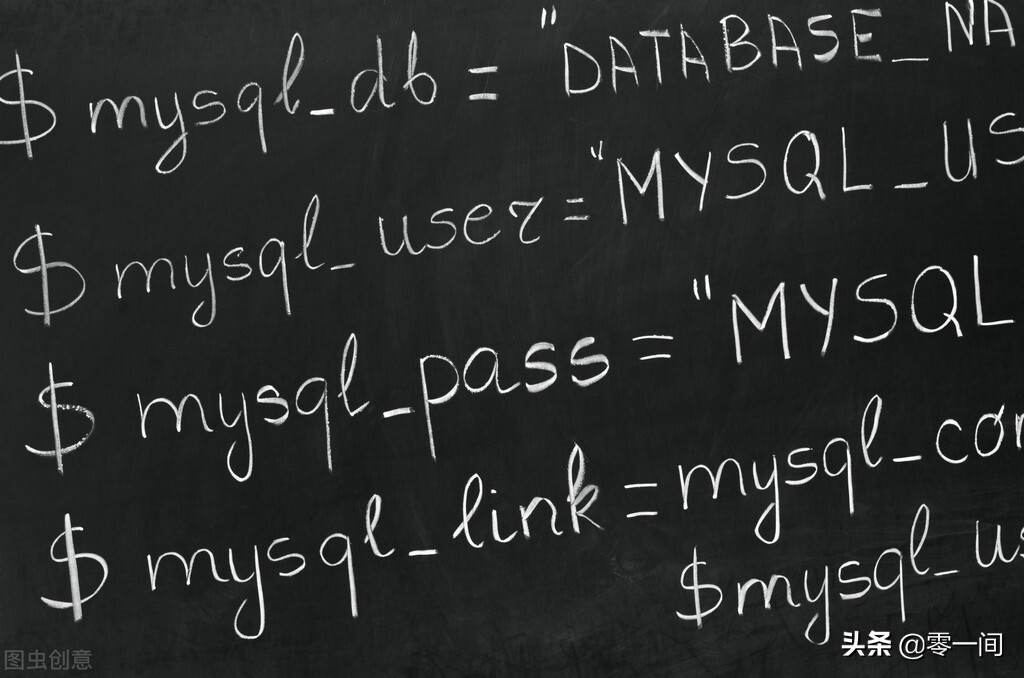 $ mysql_db = "DATABASE_NA
$ mysql_user = "MYSQL_US
$ mysql_pass = "MYSQL
$ mysql_link = mysql_con
$mysql_us
图虫创意
头条 @零一间